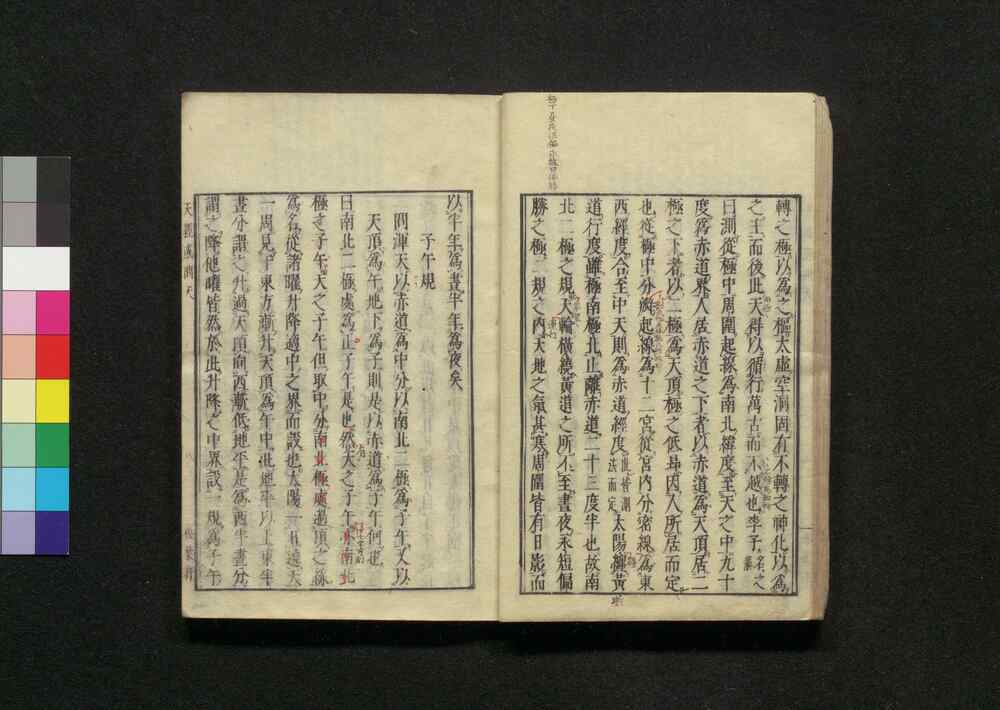 轉之極以爲之樞太虛空洞固有不轉之神化以爲
之主而後此天得以循行萬古而不越也李子名之人藻
曰測從極中周圍起線爲南北緯度至天之中九十
度爲赤道界人居赤道之下者以赤道爲天頂居二
極之下者以二極爲天頂極之低昻因人所居而定
也從極中分瓣起線爲十二宮從宮內分密線爲東
西經度合至中天則爲赤道經度此皆測法而定太陽躔黃
道行度離極南極北止離赤道二十三度半也故南
北二極之規天輪橫繞黃道之所不至晝夜永短偏
勝之極二規之內大地之氣甚寒周圍皆有日影而
以半年爲晝半年爲夜矣
子午規
問渾天以赤道爲中分以南北二極爲子午又以
天頂爲午地下爲子則是以赤道爲子午何也
曰南北二極處爲正子午是也然天之子午非南北
極之子午天之子午但取中分南北極處過頂之線
爲名從諸曜升降適中之界而說也太陽一日遶天
一周見于東方漸升天頂爲午中此地平以上東半
晝分謂之升過天頂向西漸低地平是爲酉半晝分
謂之降他曜皆然於此升降之中界設一規爲子午
天經或問 天
松葉軒